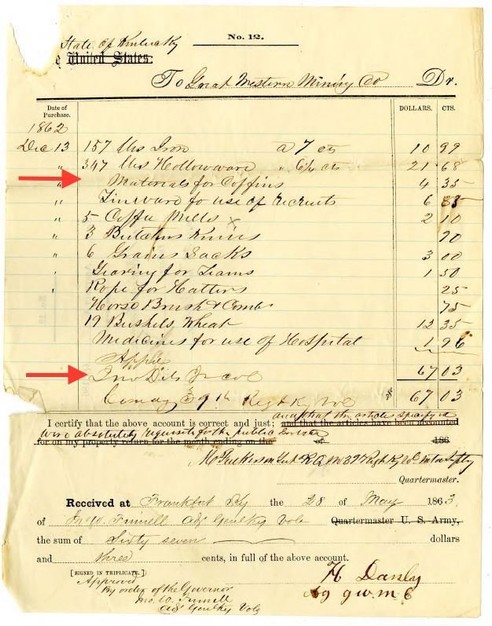 No. 12.
State of Kentucky
United States.
To Great Western Mining Co Dr.
Date of Purchase. DOLLARS. CTS.
1862
Dec 13 157 lbs Iron a 7 cts 10 99
" 347 lbs Hollowware " 6¼ cts 21 68
" Materials for Coffins 4 35
Tinware for use of Recruits 6
" 5 Coffee Mills 2 10
" 3 Butchers Knives 90
" 6 Grain Sacks 3 00
" Gearing for Teams 1 50
" Rope for Halters 25
Horse Brush & Combs 75
19 Bushels Wheat 12 35
Medicines for use of Hospital 1 96
67 03
Jno Dils Jr Col
Comdg 39th Regt Ky Vol $ 67 03
I certify that the above account is correct and just; and that the articles specified
and that the articles have been accounted
were absolutely requisite for the public service
for on my property return for the month ending on the of 186
39 Regt Ky
Quartermaster.
Received at Frankfort Ky the 28 of May 1863
of Finnell Adj Genl Ky Vols Quartermaster U. S. Army,
the sum of Sixty seven dollars
and three cents, in full of the above account.
[SIGNED IN TRIPLICATE.]
Approved
By order of the Governor
Jno. W. Finnell
Adj Genl Ky Vols
H Danby
Ag G W M C